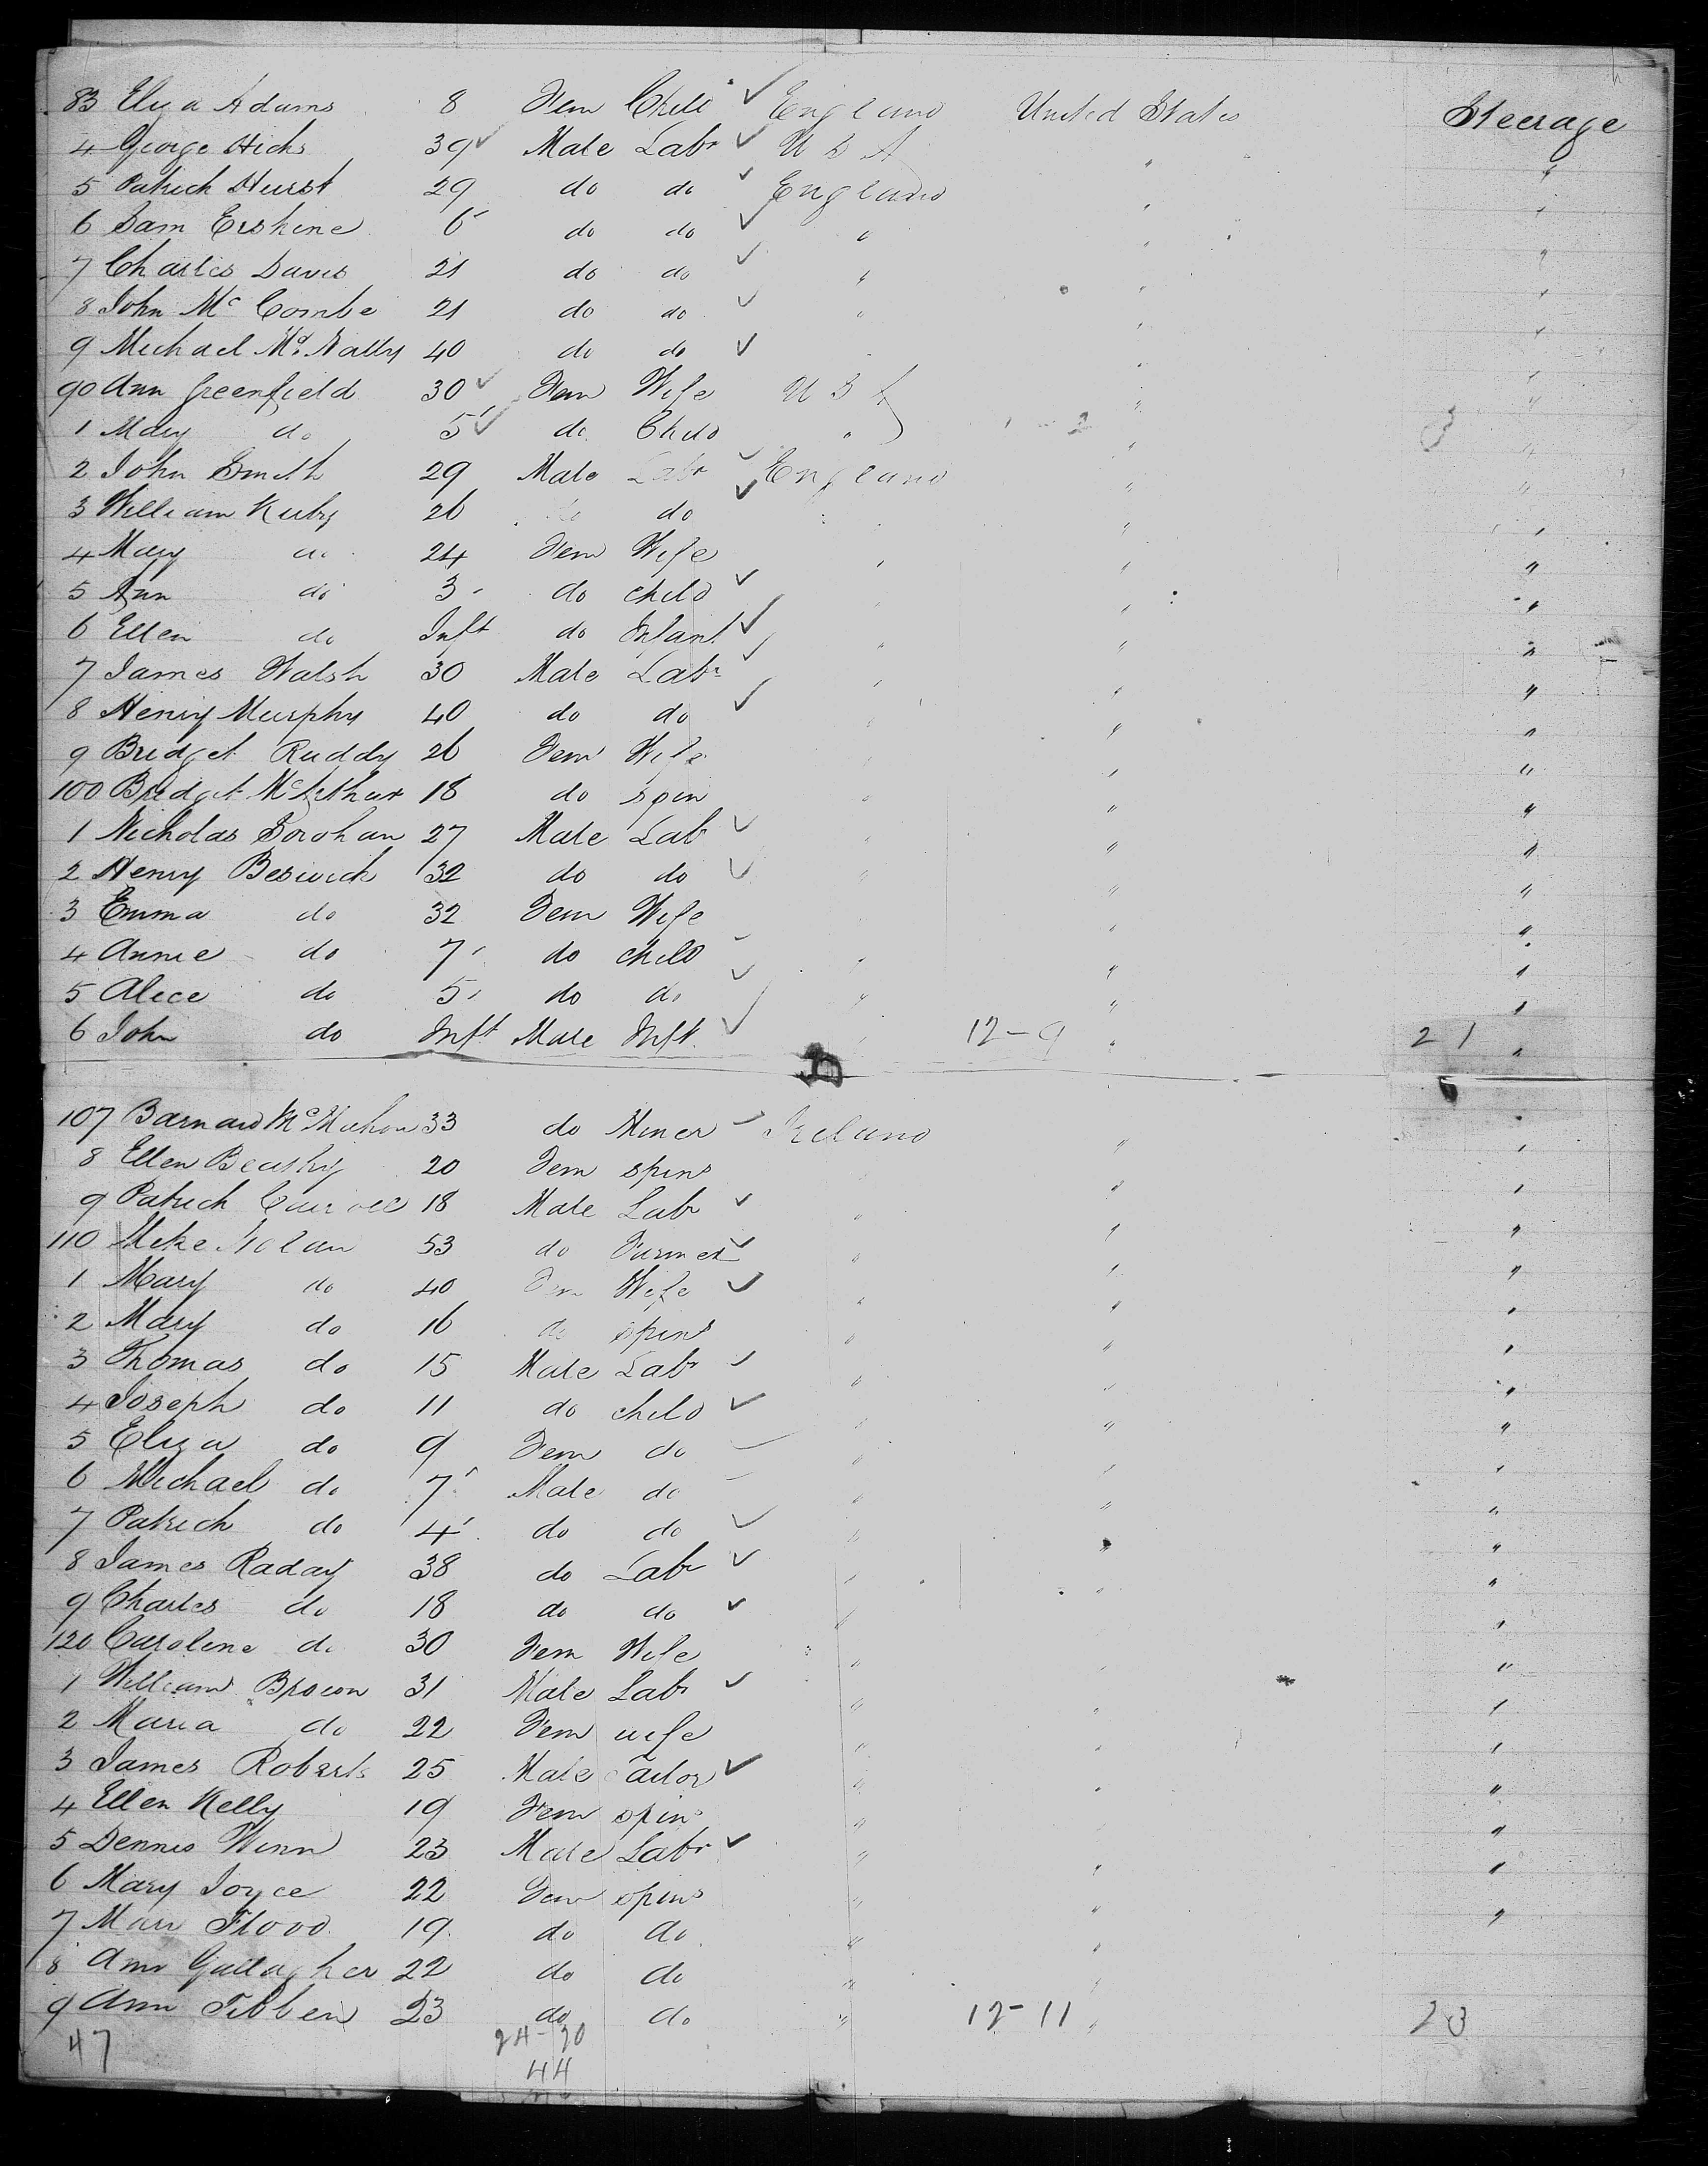 83 Eliza Adams 8 Fem Child ✓ England United States Steerage
4 George Hicks 39 ✓ Male Labr ✓ U S A " "
5 Patrick Hurst 29 do do ✓ England " "
6 Sam Erskine 6 do do ✓ " " "
7 Charles Davis 21 do do ✓ " " "
8 John Mc Combe 21 do do ✓ " " "
9 Michael Mc Nally 40 do do ✓ " "
90 Ann Greenfield 30 ✓ Fem Wife U S A " "
1 Mary do 5 ✓ do Child " " "
2 John Smith 29 Male Labr ✓ England " "
3 William Kirby 26 do do ✓ " "
4 Mary do 24 Fem Wife " " "
5 Ann do 3 do child ✓ " " "
6 Ellen do Inft do Infant ✓ " " "
7 James Walsh 30 Male Labr ✓ " " "
8 Henry Murphy 40 do do ✓ " " "
9 Bridget Ruddy 26 Fem Wife " " "
100 Bridget McArthur 18 do spin " " "
1 Nicholas Sorohan 27 Male Lab ✓ " " "
2 Henry Beswick 32 do do ✓ " " "
3 Emma do 32 Fem Wife " "
4 Annie do 7 do child " " "
5 Alice do 5 do do ✓ " " "
6 John do Inft Male Inft ✓ " 12-9 " 21 "
107 Barnard McMahon 33 do Miner Ireland " "
8 Ellen 20 Fem spins " "
9 Patrick Carroll 18 Male Labr ✓ " " "
110 Mike Nolan 53 do Farmer ✓ " " "
1 Mary do 40 Fem Wife ✓ " " "
2 Mary do 16 do spins " " "
3 Thomas do 15 Male Labr ✓ " " "
4 Joseph do 11 do child ✓ " " "
5 Eliza do 9 Fem do " " "
6 Michael do 7 Male do " " "
7 Patrick do 4 do do ✓ " " "
8 James Raday 38 do Labr ✓ " " "
9 Charles do 18 do do ✓ " " "
120 Caroline do 30 Fem Wife " " "
1 William Brown 31 Male Labr ✓ " " "
2 Maria do 22 Fem wife " " "
3 James Roberts 25 Male Tailor ✓ " " "
4 Ellen Kelly 19 Fem spins " " "
5 Dennis Winn 23 Male Labr ✓ " " "
6 Mary Joyce 22 Fem spins " " "
7 Mary Flood 19 do do " " "
8 Ann Gallagher 22 do do " "
9 Ann Tibben 23 do do " 12-11 " 23
47 24-20
44